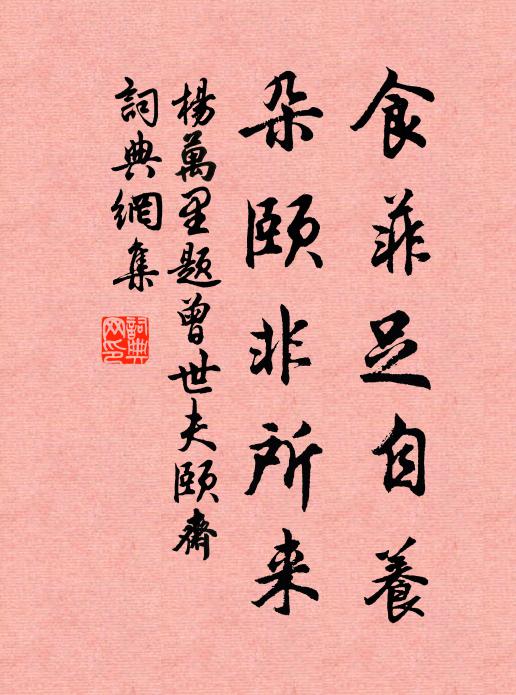 食菲足自養
朵頤非所来
楊萬里題曾世夫頤齋
詞典網集
詞典
网印